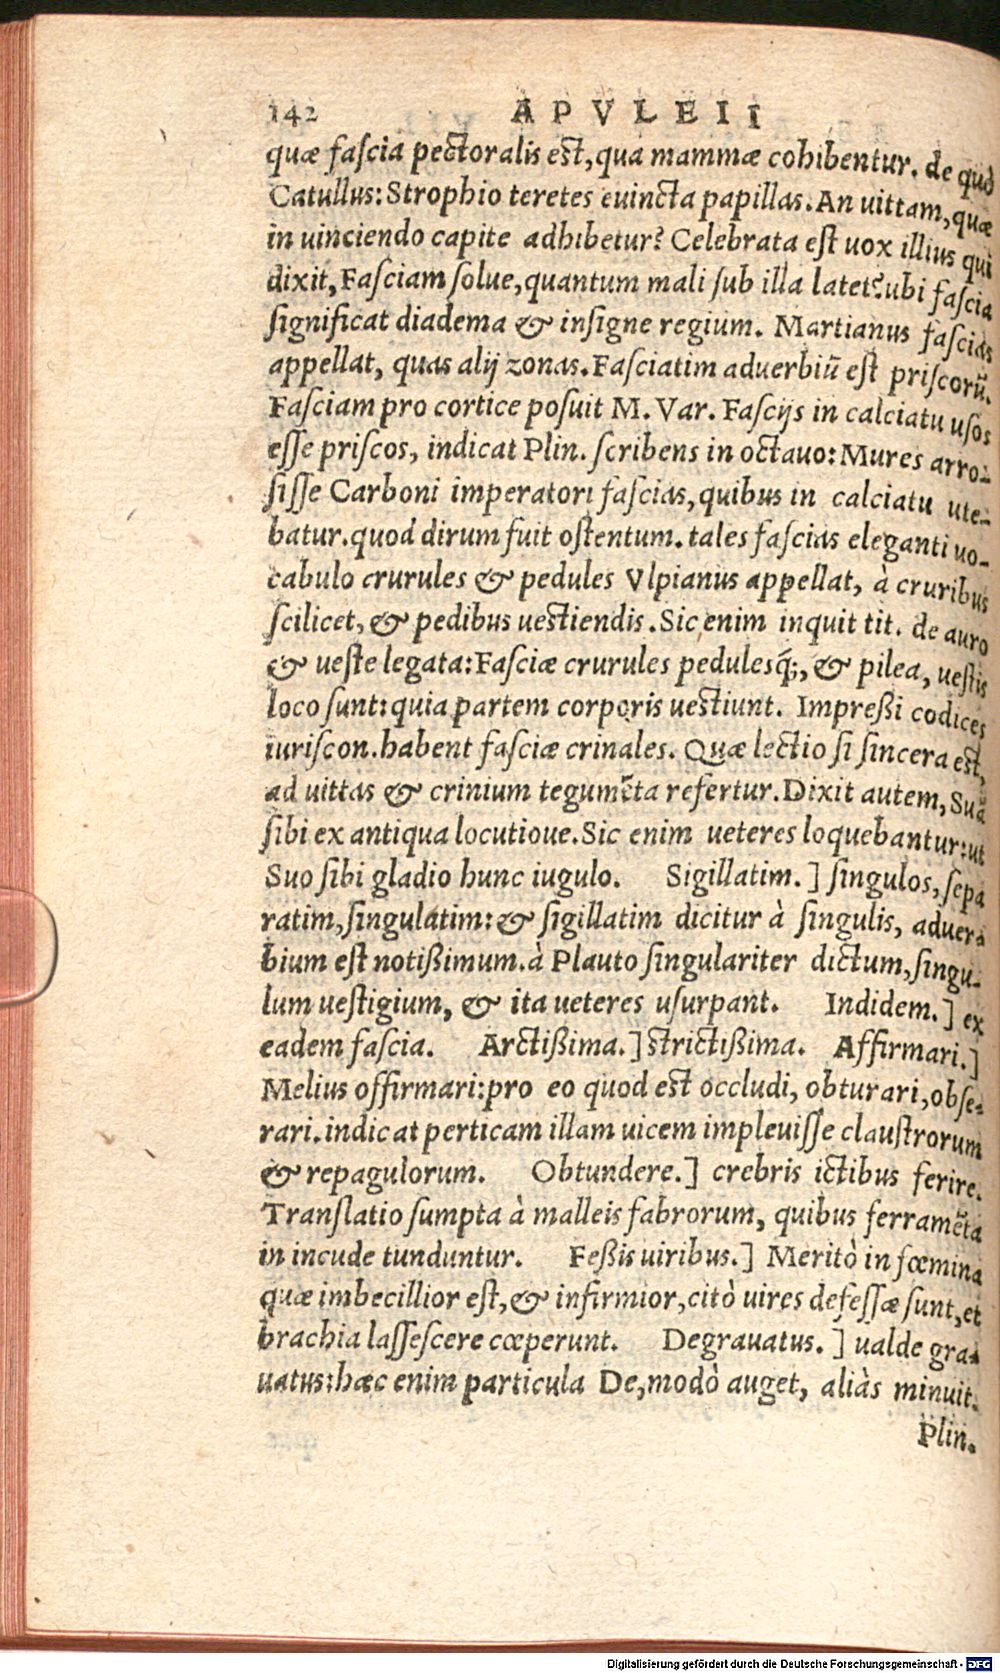 142 APVLEII
quæ faſcia pectoralis eſt, qua mammæ cohibentur. de quo
Catullus: Strophio teretes euincta papillas. An uittam, quæ
in uinciendo capite adhibetur? Celebrata eſt uox illius qui
dixit, Faſciam ſolue, quantum mali ſub illa latet? ubi faſcia
ſignificat diadema & inſigne regium. Martianus faſcias
appellat, quas alij zonas. Faſciatim aduerbiũ eſt priſcorũ.
Faſciam pro cortice poſuit M. Var. Faſcijs in calciatu uſos
eſſe priſcos, indicat Plin. ſcribens in octauo: Mures arro-
ſiſſe Carboni imperatori faſcias, quibus in calciatu ute-
batur. quod dirum fuit oſtentum. tales faſcias eleganti uo-
cabulo crurules & pedules Vlpianus appellat, à cruribus
ſcilicet, & pedibus ueſtiendis. Sic enim inquit tit. de auro
& ueſte legata: Faſciæ crurules pedulesq́;, & pilea, ueſtis
loco ſunt: quia partem corporis ueſtiunt. Impreßi codices
iuriſcon. habent faſciæ crinales. Quæ lectio ſi ſincera eſt,
ad uittas & crinium tegumẽta refertur. Dixit autem, Suã
ſibi ex antiqua locutioue. Sic enim ueteres loquebantur: ut
Suo ſibi gladio hunc iugulo. Sigillatim. ] ſingulos, ſepa
ratim, ſingulatim: & ſigillatim dicitur à ſingulis, aduer-
bium eſt notißimum. à Plauto ſingulariter dictum, ſingu-
lum ueſtigium, & ita ueteres uſurpant. Indidem. ] ex
eadem faſcia. Arctißima. ] ſtrictißima. Affirmari. ]
Melius offirmari: pro eo quod eſt occludi, obturari, obſe-
rari. indicat perticam illam uicem impleuiſſe clauſtrorum
& repagulorum. Obtundere. ] crebris ictibus ferire.
Tranſlatio ſumpta à malleis fabrorum, quibus ferramẽta
in incude tunduntur. Feßis uiribus. ] Meritò in fœmina
quæ imbecillior eſt, & infirmior, citò uires defeſſæ ſunt, et
brachia laſſeſcere cœperunt. Degrauatus. ] ualde gra-
uatus: hæc enim particula De, modò auget, aliàs minuit.
Plin.
Digitalisierung gefördert durch die Deutsche Forschungsgemeinschaft - DFG